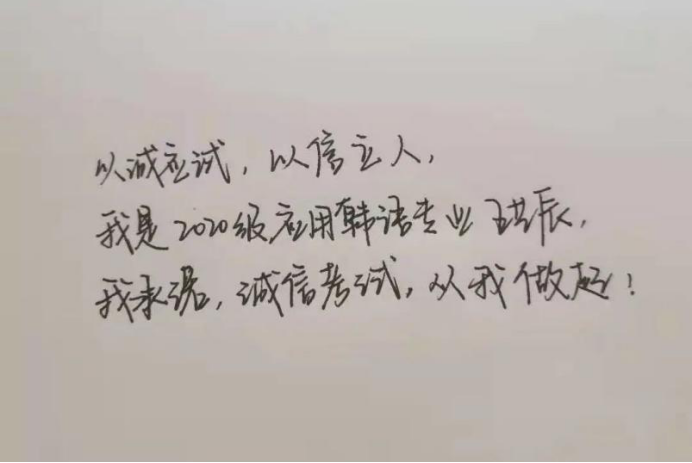 以诚应试，以信立人，
我是2020级应用韩语专业王艺辰，
我承诺，诚信考试，从我做起！